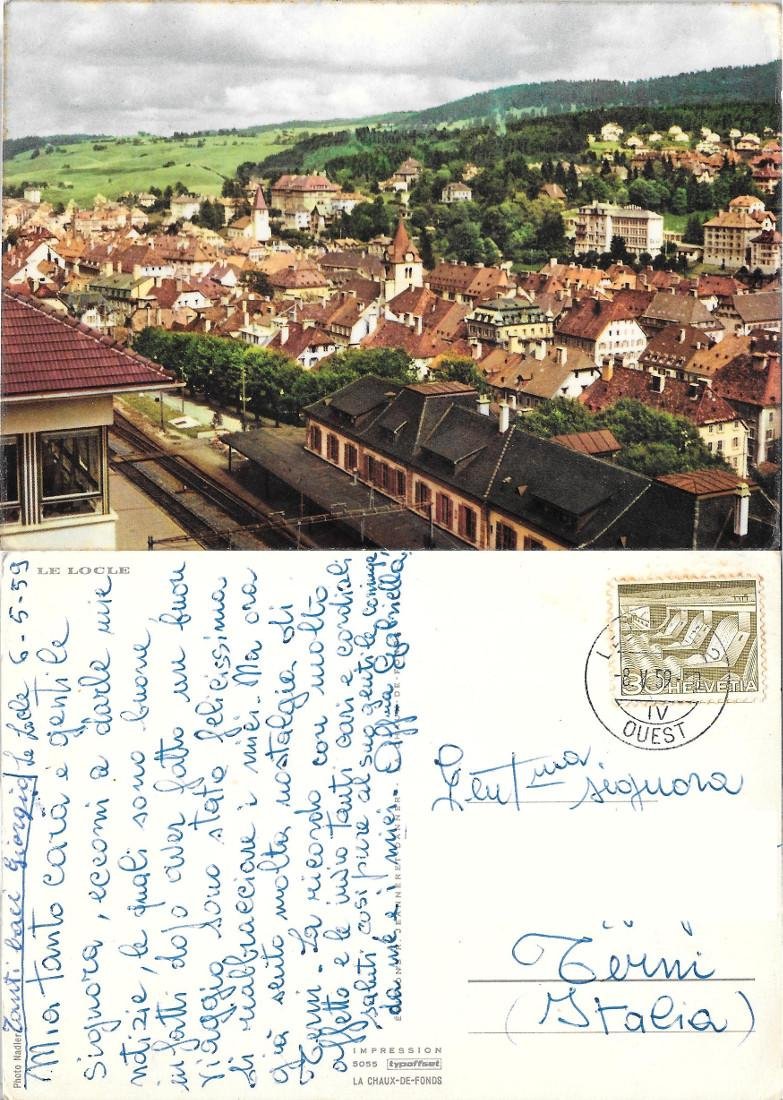 LE LOCLE
Tanti baci Giorgio
Le Locle 6-5-59
Mia tanto cara e gentile
Signora, eccomi a darle mie
notizie, le quali sono buone,
infatti dopo aver fatto un buon
viaggio sono stata felicissima
di riabbracciare i miei. Ma ora
già sento molta nostalgia di
Terni. La ricordo con molto
affetto e le invio tanti cari e cordiali
saluti così pure al suo gentile coniuge,
da me e i miei. Aff.ma Gabriella
Photo Nadler
IMPRESSION
5055 typoffset
LA CHAUX-DE-FONDS
30 HELVETIA
-8.V.59
IV
OUEST
Gent.ma signora
Terni
(Italia)